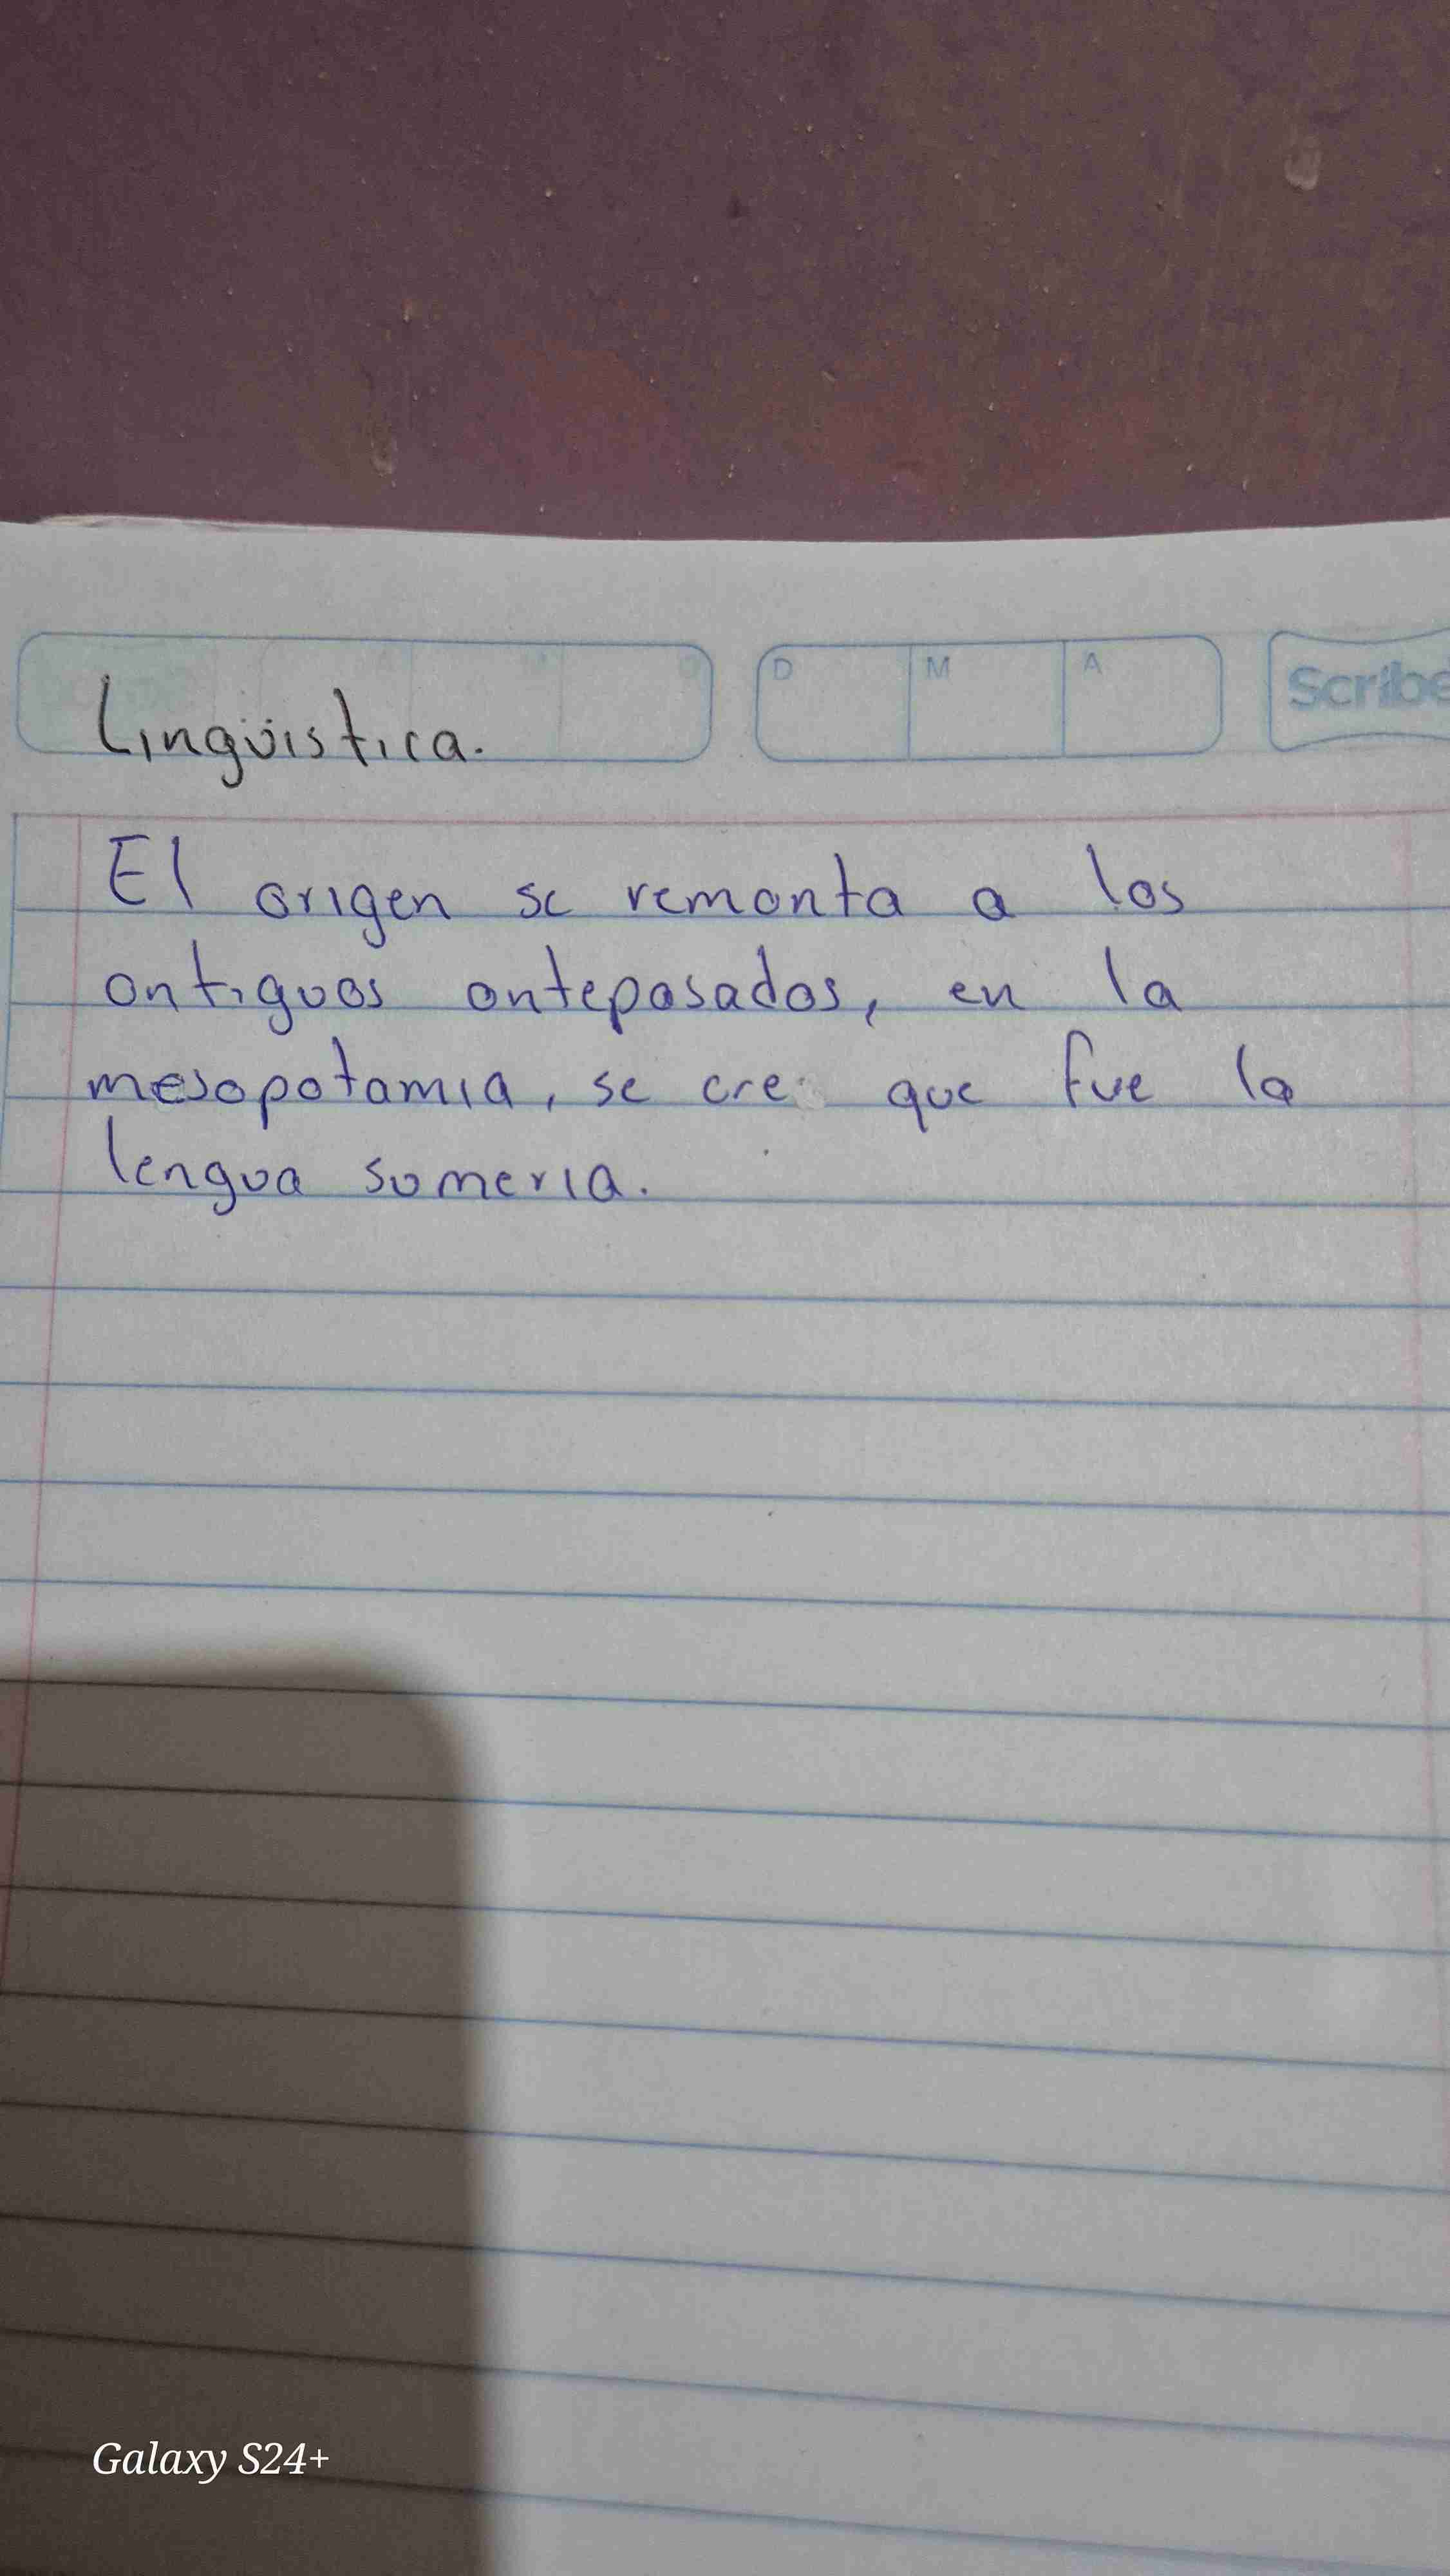 Lingüistica.
D M A
Scribe
El origen se remonta a los
antiguos antepasados, en la
mesopotamia, se cre que fue la
lengua sumeria.
Galaxy S24+